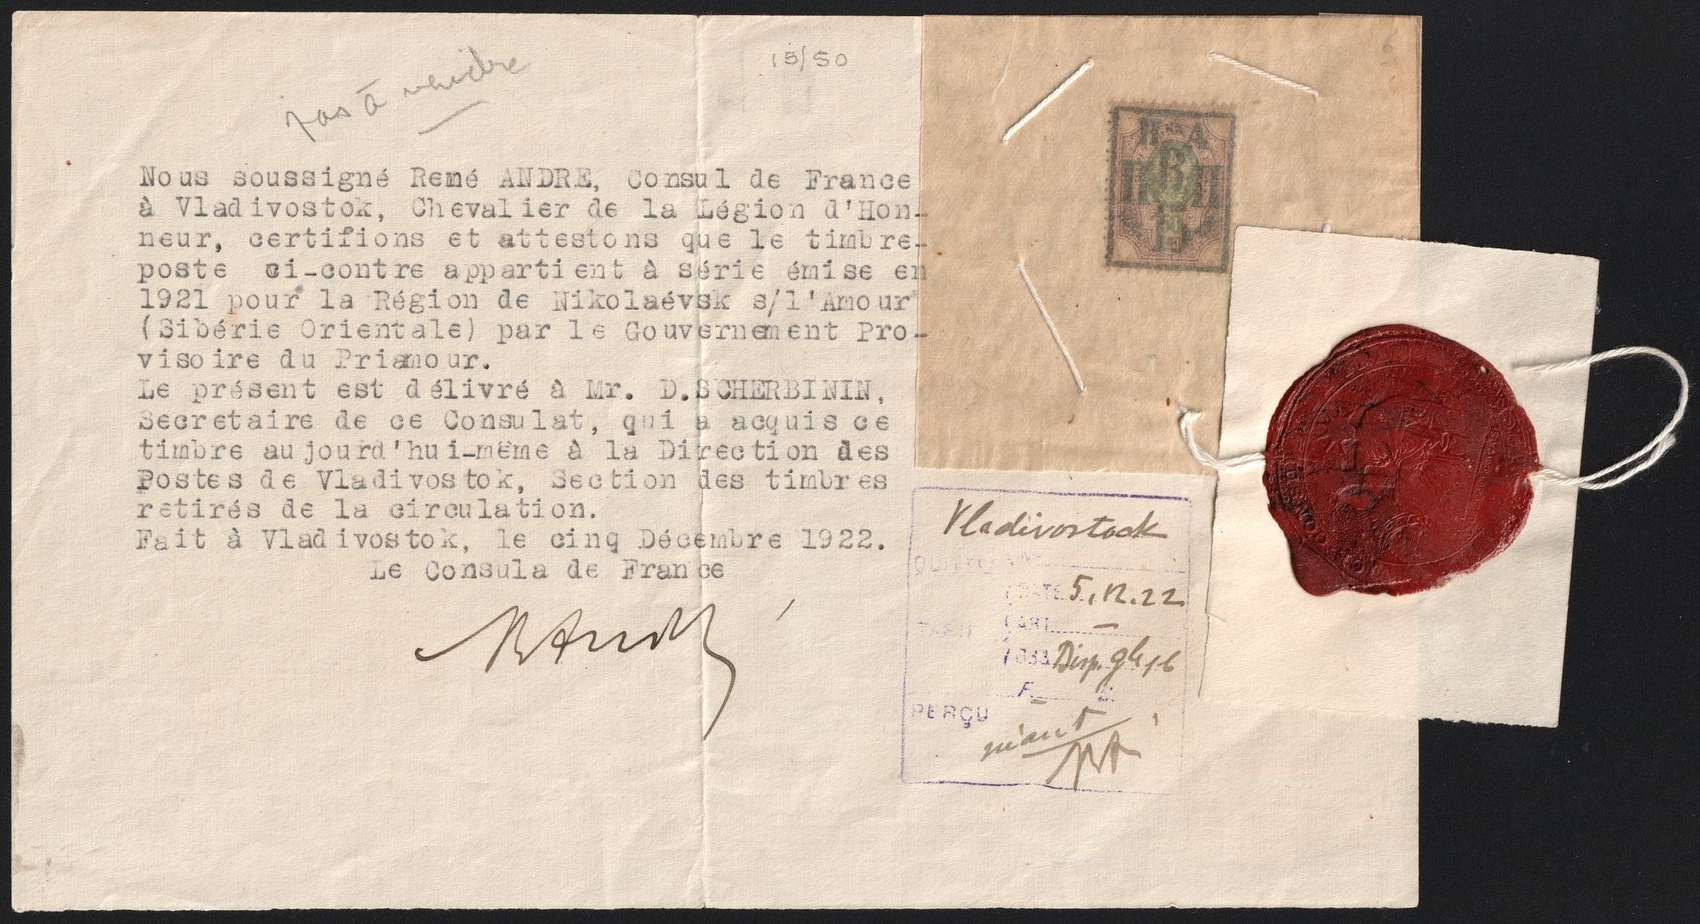 pas à vendre
15/50
Nous soussigné Remé ANDRE, Consul de France
à Vladivostok, Chevalier de la Légion d'Hon-
neur, certifions et attestons que le timbre-
poste ci-contre appartient à série émise en
1921 pour la Région de Nikolaévsk s/l'Amour
(Sibérie Orientale) par le Gouvernement Pro-
visoire du Priamour.
Le présent est délivré à Mr. D.SCHERBININ,
Secretaire de ce Consulat, qui a acquis ce
timbre aujourd'hui-même à la Direction des
Postes de Vladivostok, Section des timbres
retirés de la circulation.
Fait à Vladivostok, le cinq Décembre 1922.
Le Consula de France
RAndré
6
Н А
П П
Vladivostock
DATE 5.12.22
TARIF
ART. —
PERÇU
néant
RA